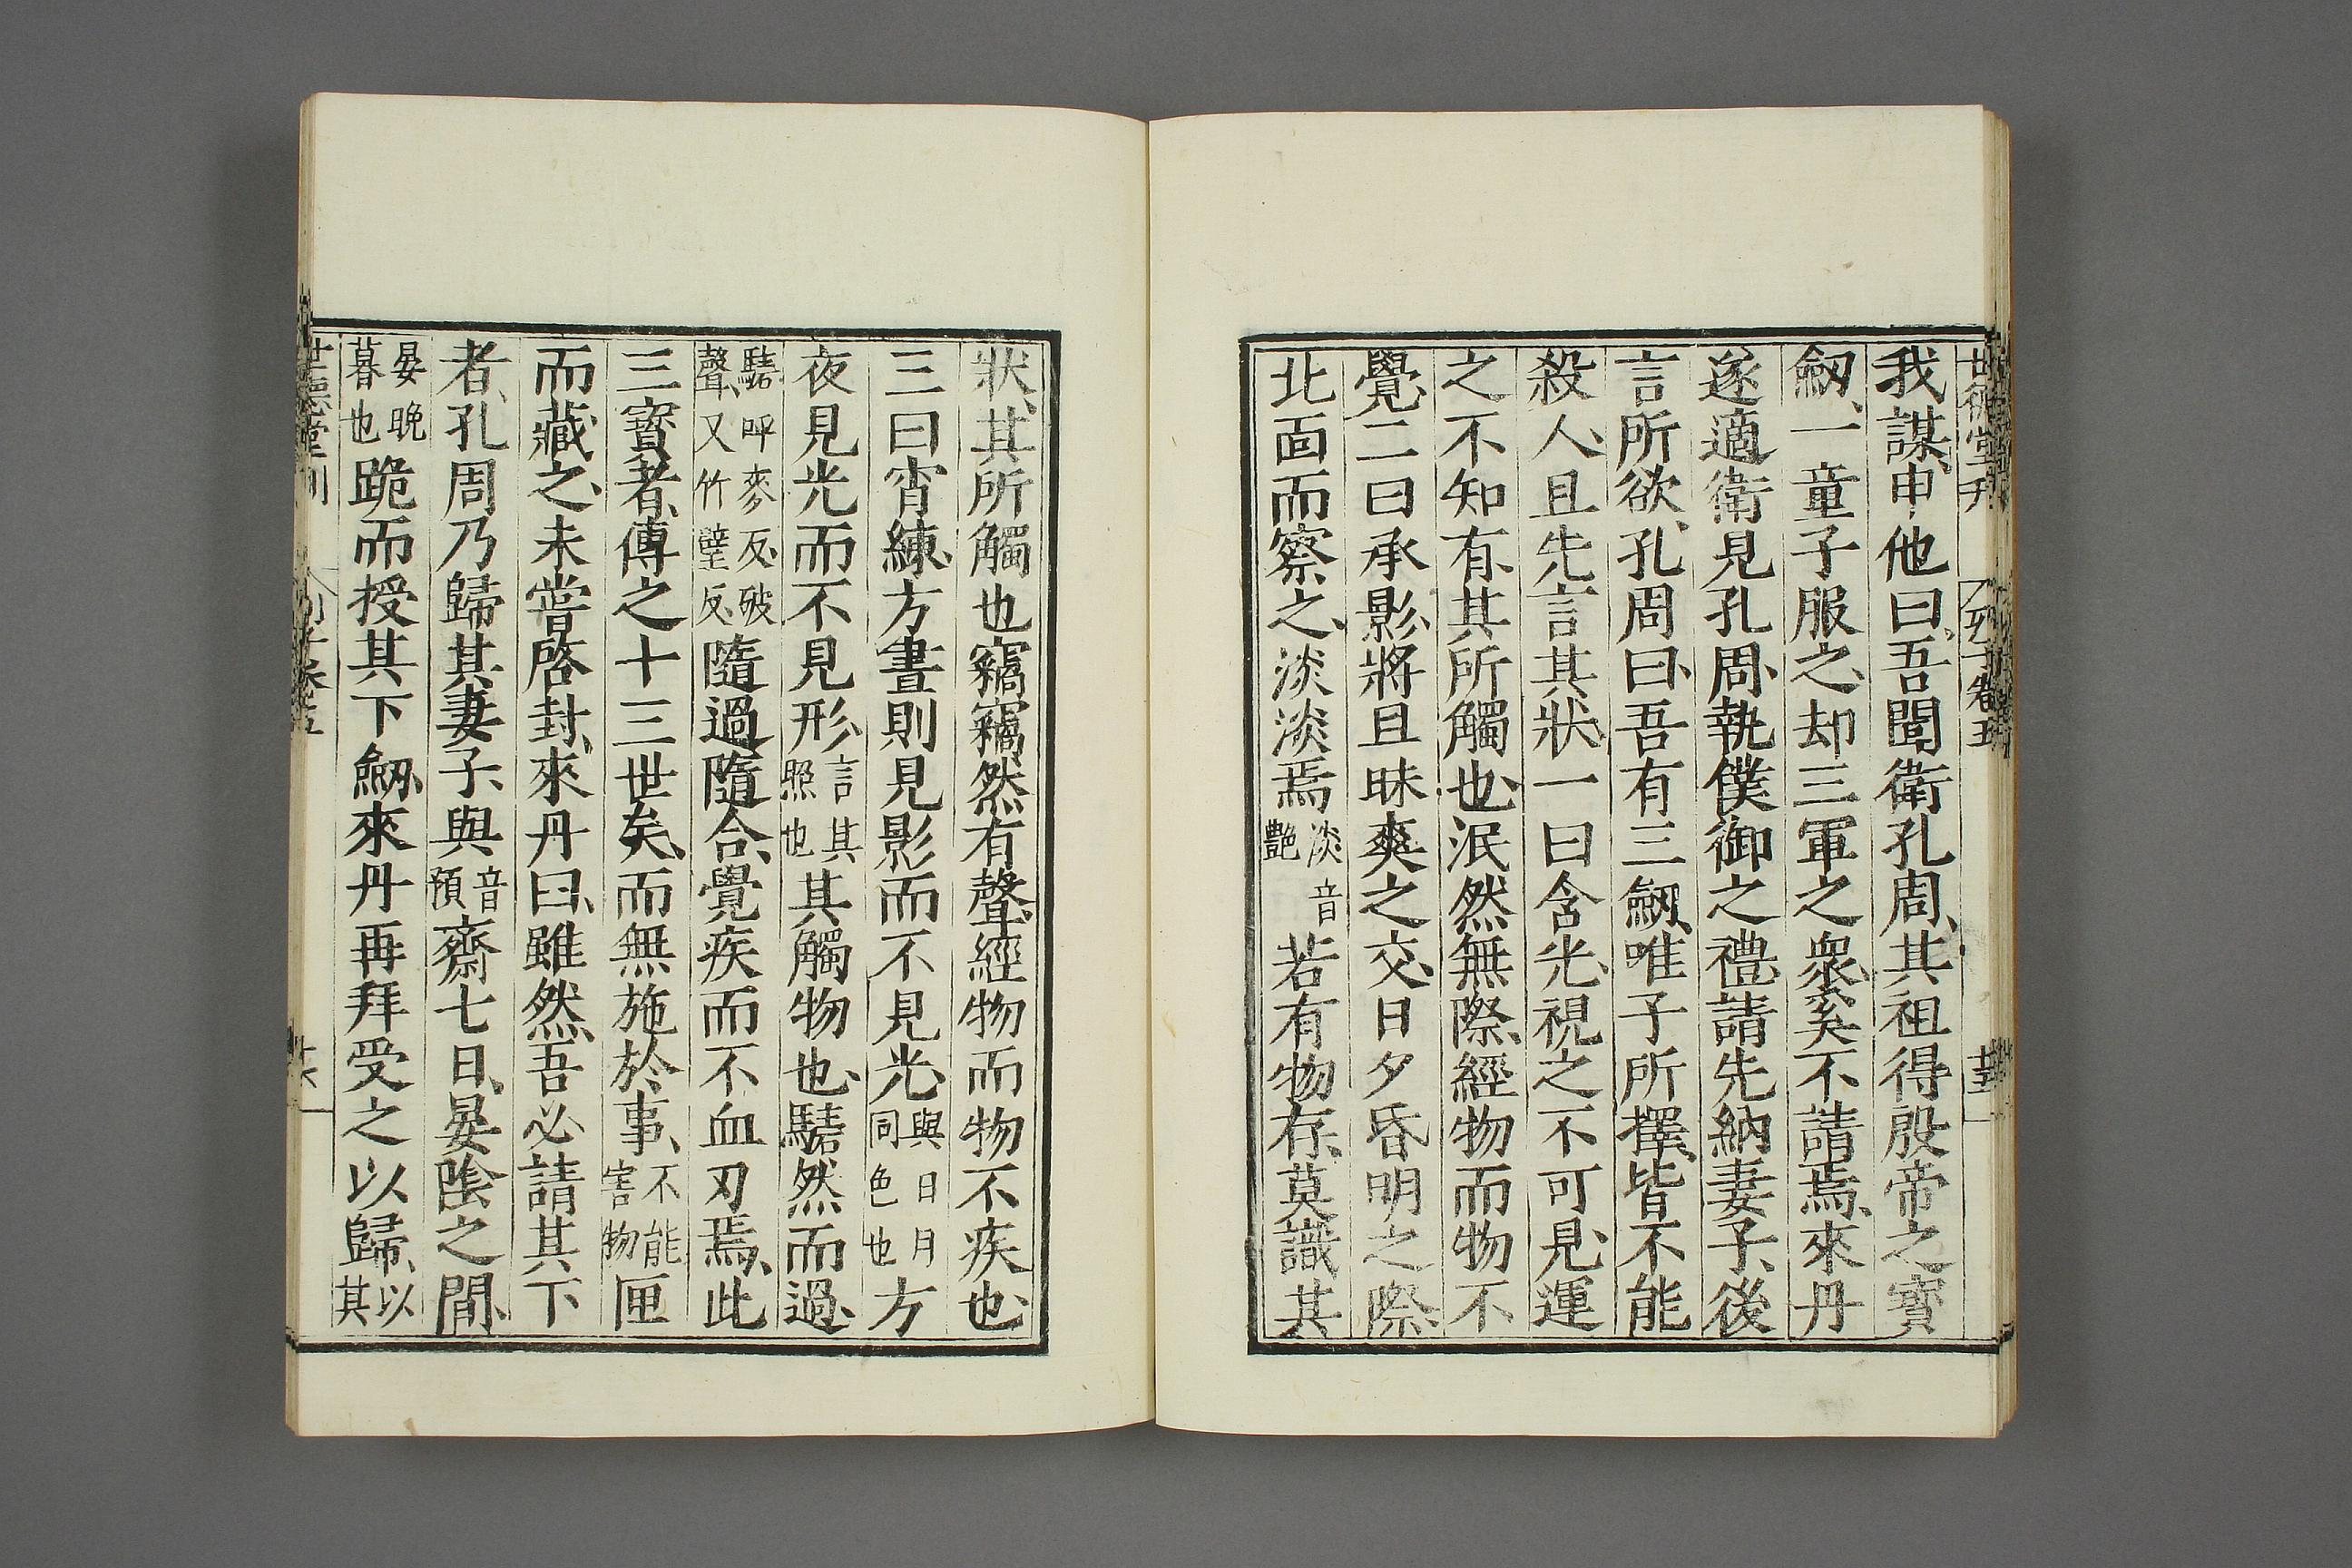 世德堂刊 列子卷五
我謀、申他曰、吾聞衛孔周、其祖得殷帝之寶
劔、一童子服之、却三軍之衆、奚不請焉、來丹
遂適衛見孔周、執僕御之禮、請先納妻子、後
言所欲、孔周曰、吾有三劔、唯子所擇、皆不能
殺人、且先言其狀、一曰含光、視之不可見、運
之不知有、其所觸也、泯然無際、經物而物不
覺、二曰承影、將旦昧爽之交、日夕昏明之際
北面而察之、淡淡焉淡音艶若有物存、莫識其
狀、其所觸也、竊竊然有聲、經物而物不疾也、
三曰宵練、方晝則見影而不見光、與日月同色也方
夜見光而不見形、言其照也其觸物也、騞然而過、
騞呼麥反破聲、又竹璧反隨過隨合、覺疾而不血刃焉、此
三寶者、傳之十三世矣、而無施於事、不能害物匣
而藏之、未嘗啓封、來丹曰、雖然、吾必請其下
者、孔周乃歸其妻子、與音預齋七日、晏陰之間、
晏晚暮也跪而授其下劔、來丹再拜受之以歸、以其
世德堂刊 列子卷五